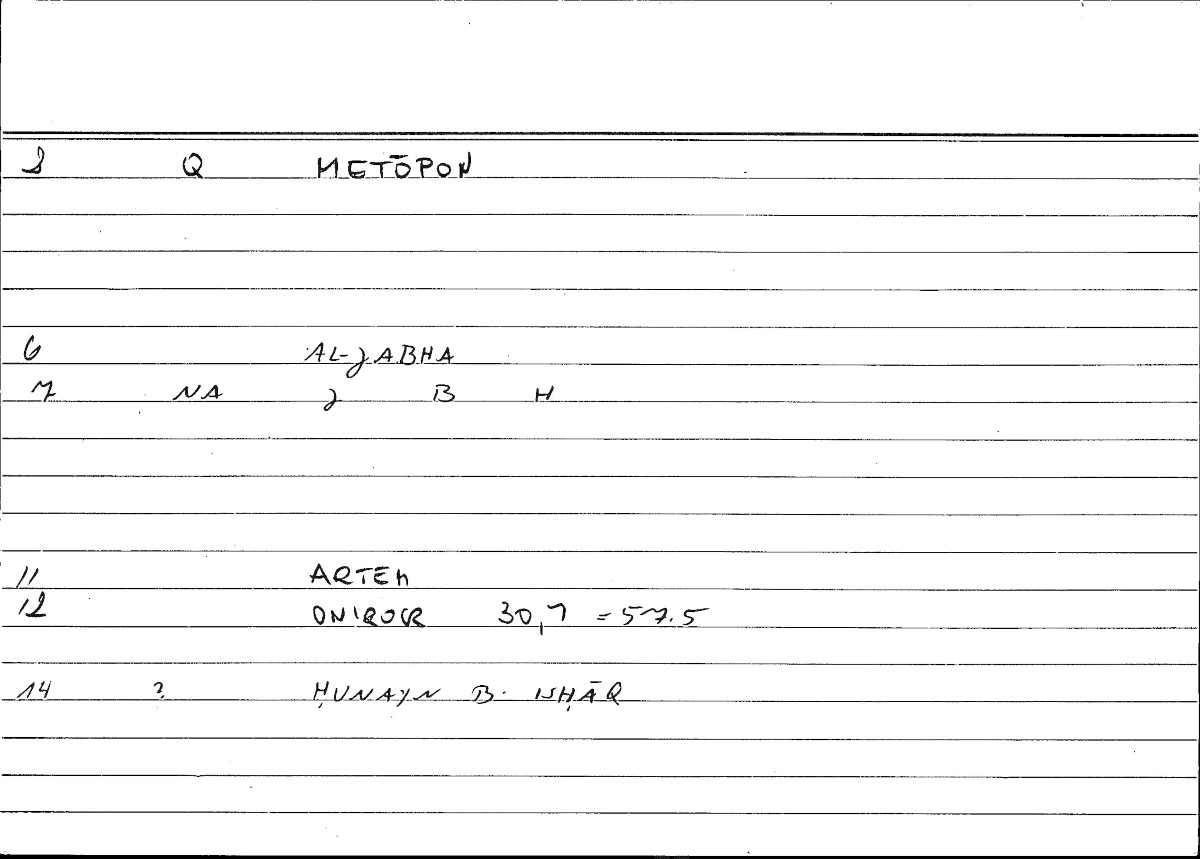 2 Q METŌPON
6 AL-JABHA
7 NA J B H
11 ARTEM
12 ONIROCR 30,7 = 57.5
14 ? ḤUNAYN B. ISḤĀQ